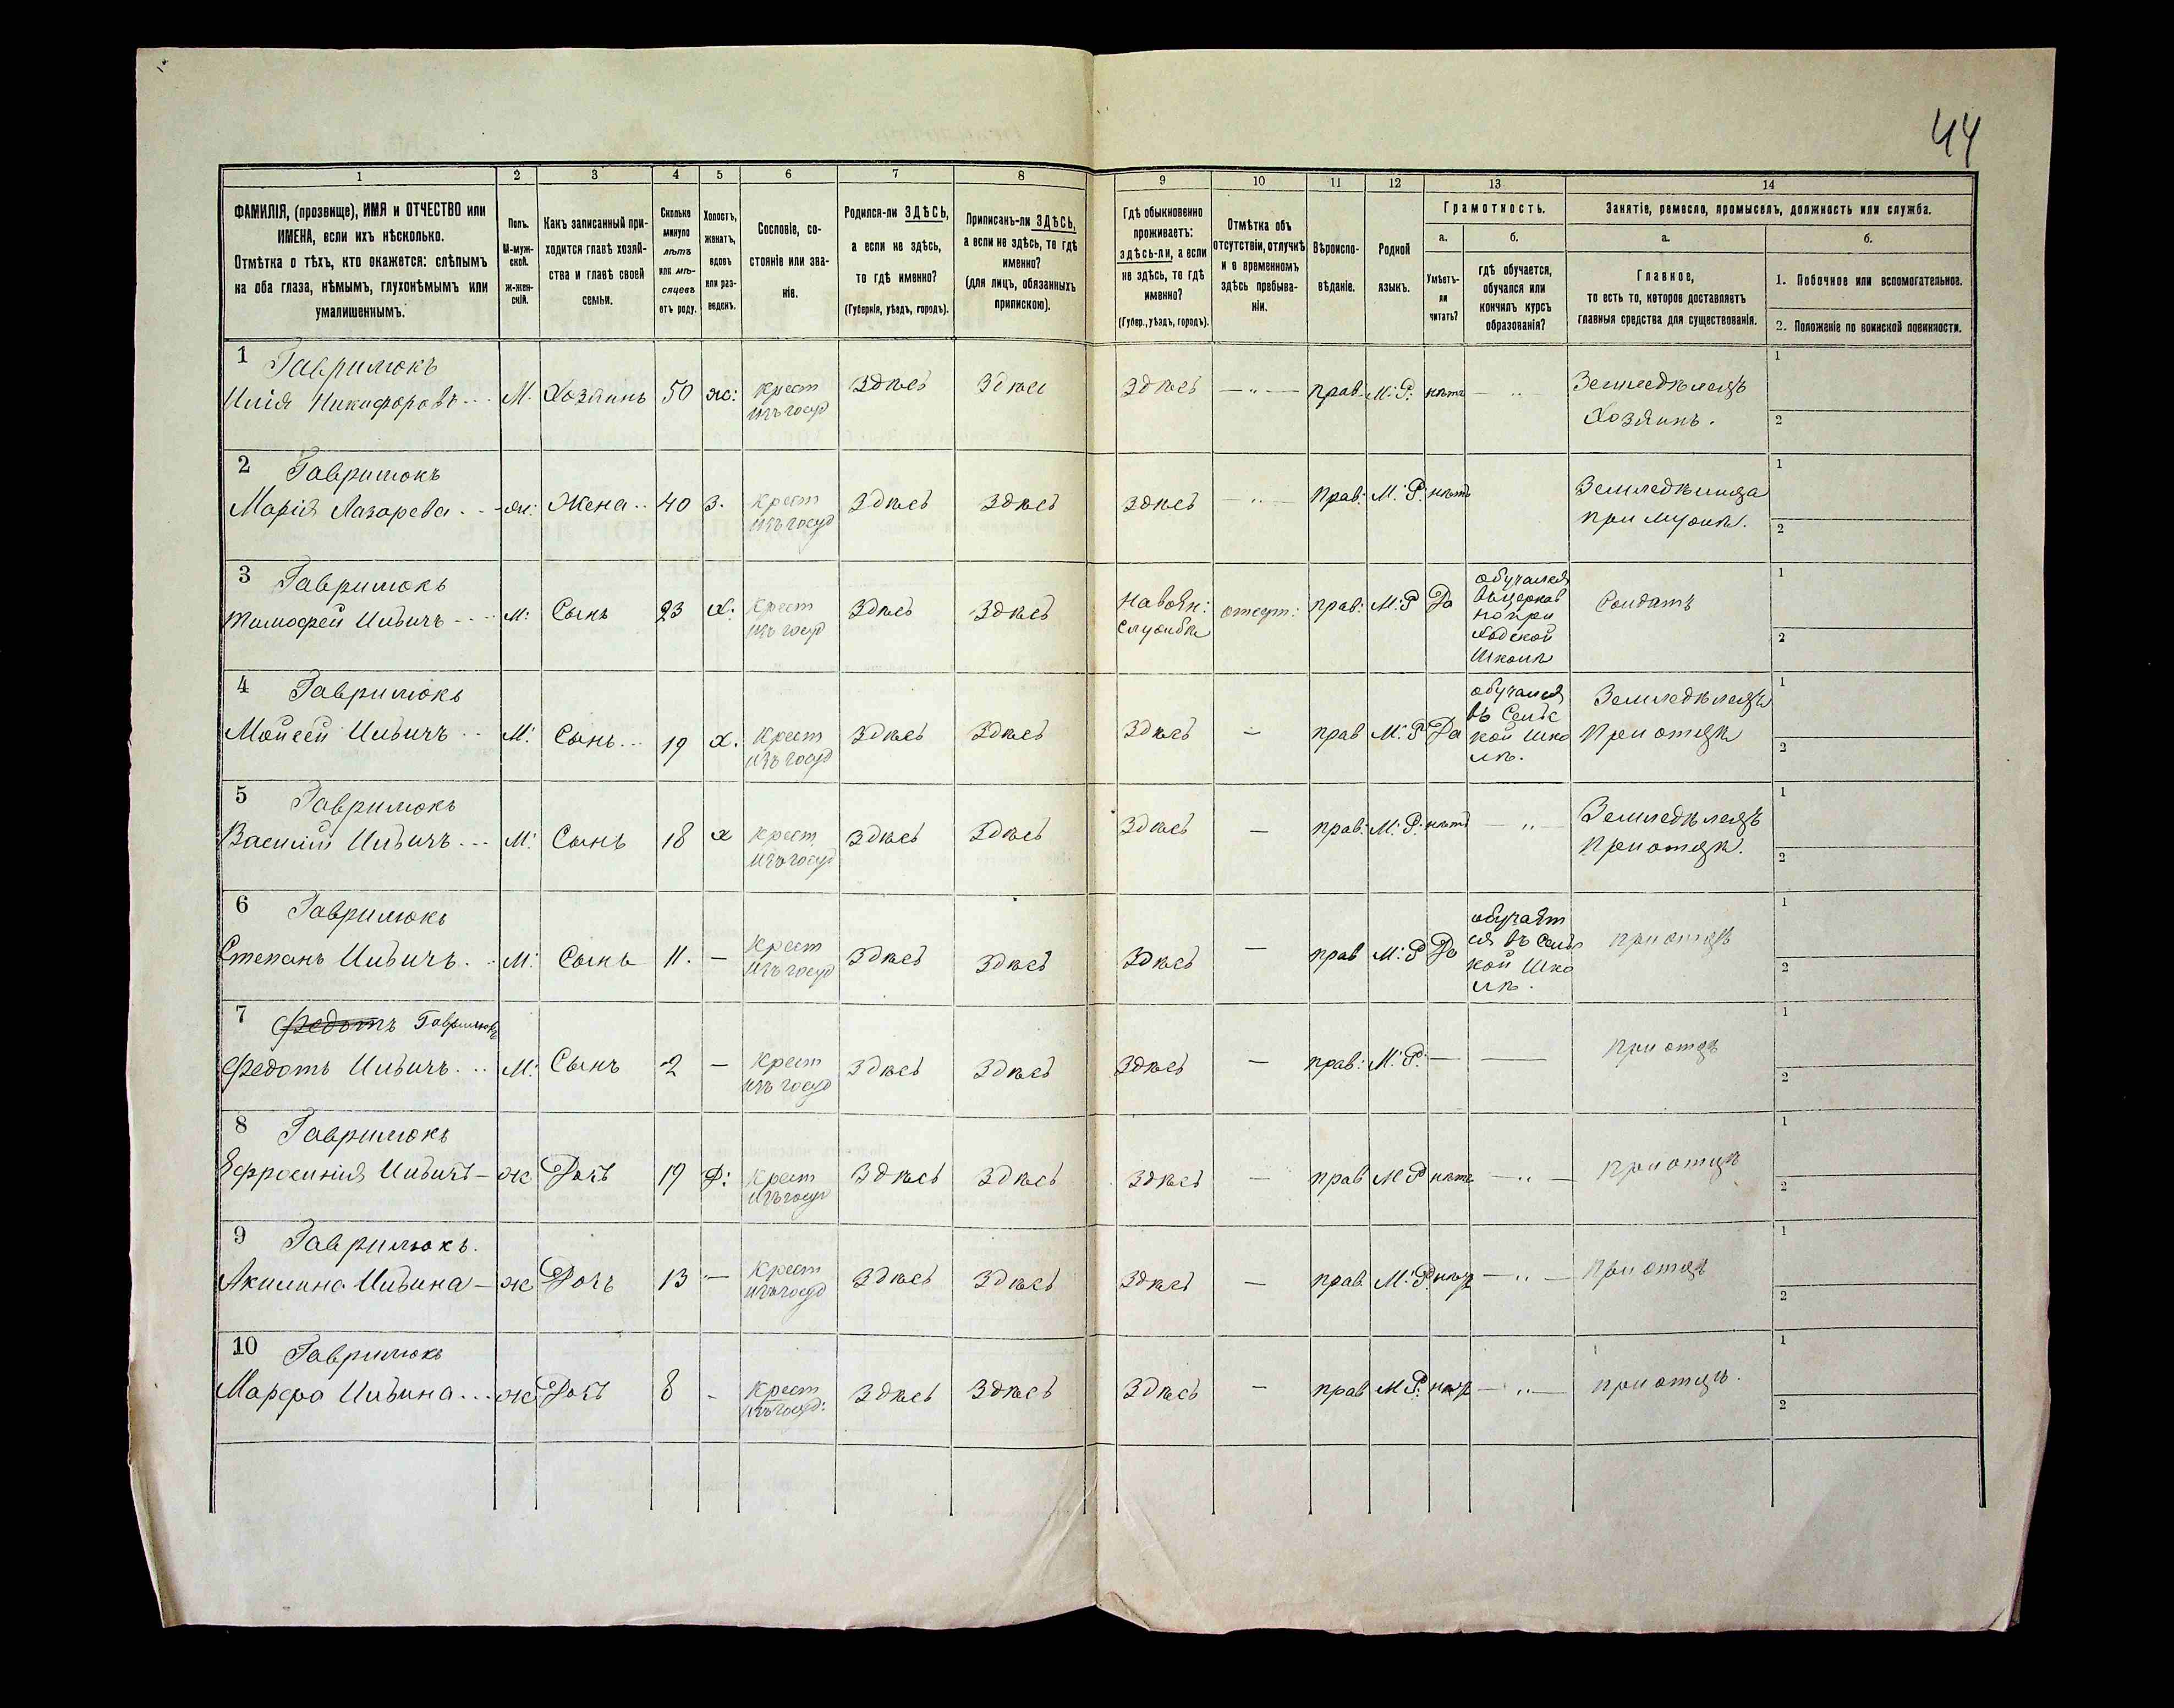 44
1 2 3 4 5 6 7 8 9 10 11 12 13 14
ФАМИЛІЯ, (прозвище), ИМЯ и ОТЧЕСТВО или
ИМЕНА, если ихъ нѣсколько.
Отмѣтка о тѣхъ, кто окажется: слѣпымъ
на оба глаза, нѣмымъ, глухонѣмымъ или
умалишеннымъ.
Полъ.
М-муж-
ской.
Ж-жен-
скій.
Какъ записанный при-
ходится главѣ хозяй-
ства и главѣ своей
семьи.
Сколько
минуло
лѣтъ
или мѣ-
сяцевъ
отъ роду.
Холостъ,
женатъ,
вдовъ
или раз-
веденъ.
Сословіе, со-
стояніе или зва-
ніе.
Родился-ли ЗДѢСЬ,
а если не здѣсь,
то гдѣ именно?
(Губернія, уѣздъ, городъ).
Приписанъ-ли ЗДѢСЬ,
а если не здѣсь, то гдѣ
именно?
(для лицъ, обязанныхъ
припискою).
Гдѣ обыкновенно
проживаетъ:
здѣсь-ли, а если
не здѣсь, то гдѣ
именно?
(Губер., уѣздъ, городъ).
Отмѣтка объ
отсутствіи, отлучкѣ
и о временномъ
здѣсь пребыва-
ніи.
Вѣроиспо-
вѣданіе.
Родной
языкъ.
Грамотность.
а.
Умѣетъ-
ли
читать?
б.
гдѣ обучается,
обучался или
кончилъ курсъ
образованія?
Занятіе, ремесло, промыселъ, должность или служба.
а.
Главное,
то есть то, которое доставляетъ
главныя средства для существованія.
б.
1. Побочное или вспомогательное.
2. Положеніе по воинской повинности.
1 Гаврилюкъ
Илія Никифоровъ М. Хозяинъ 50 ж: крест изъ госуд Здѣсь Здѣсь Здѣсь — „ — прав: М: Р: нѣтъ — „ — Земледѣлецъ
Хозяинъ.
1
2
2 Гаврилюкъ
Марія Лазарева ж: Жена 40 З. крест изъ госуд Здѣсь Здѣсь Здѣсь — „ — прав: М: Р: нѣтъ Земледѣлица
при мужѣ.
1
2
3 Гаврилюкъ
Тимофей Ильичъ М: Сынъ 23 х: крест изъ госуд Здѣсь Здѣсь На воен: службѣ отсут: прав: М: Р Да обучался
въ церков
но при
ходской
школѣ
Солдатъ
1
2
4 Гаврилюкъ
Мойсей Ильичъ М: Сынъ 19 х. крест изъ госуд Здѣсь Здѣсь Здѣсь — прав М: Р Да обучался
въ Сельс
кой шко
лѣ.
Земледѣлецъ
При отцѣ
1
2
5 Гаврилюкъ
Василій Ильичъ М: Сынъ 18 х крест изъ госуд Здѣсь Здѣсь Здѣсь — прав: М: Р: нѣтъ — „ — Земледѣлецъ
При отцѣ.
1
2
6 Гаврилюкъ
Степанъ Ильичъ М: Сынъ 11. — крест изъ госуд Здѣсь Здѣсь Здѣсь — прав М: Р Да обучаѣт
ся въ Сельс
кой Шко
лѣ.
при отцѣ
1
2
7 Федотъ Гаврилюкъ
Федотъ Ильичъ М: Сынъ 2 — крест изъ госуд Здѣсь Здѣсь Здѣсь — прав: М: Р: — — при отцѣ
1
2
8 Гаврилюкъ
Ефросинія Ильичъ ж Дочь 19 Д: крест изъ госуд Здѣсь Здѣсь Здѣсь — прав М Р нѣтъ — „ — при отцѣ
1
2
9 Гаврилюкъ.
Акилина Ильина ж Дочь 13 — крест изъ госуд Здѣсь Здѣсь Здѣсь — прав. М: Р: — „ — при отцѣ
1
2
10 Гаврилюкъ
Марфа Ильина ж Дочь 8 - крест изъ госуд: Здѣсь Здѣсь Здѣсь — прав М Р: — „ — при отцѣ.
1
2